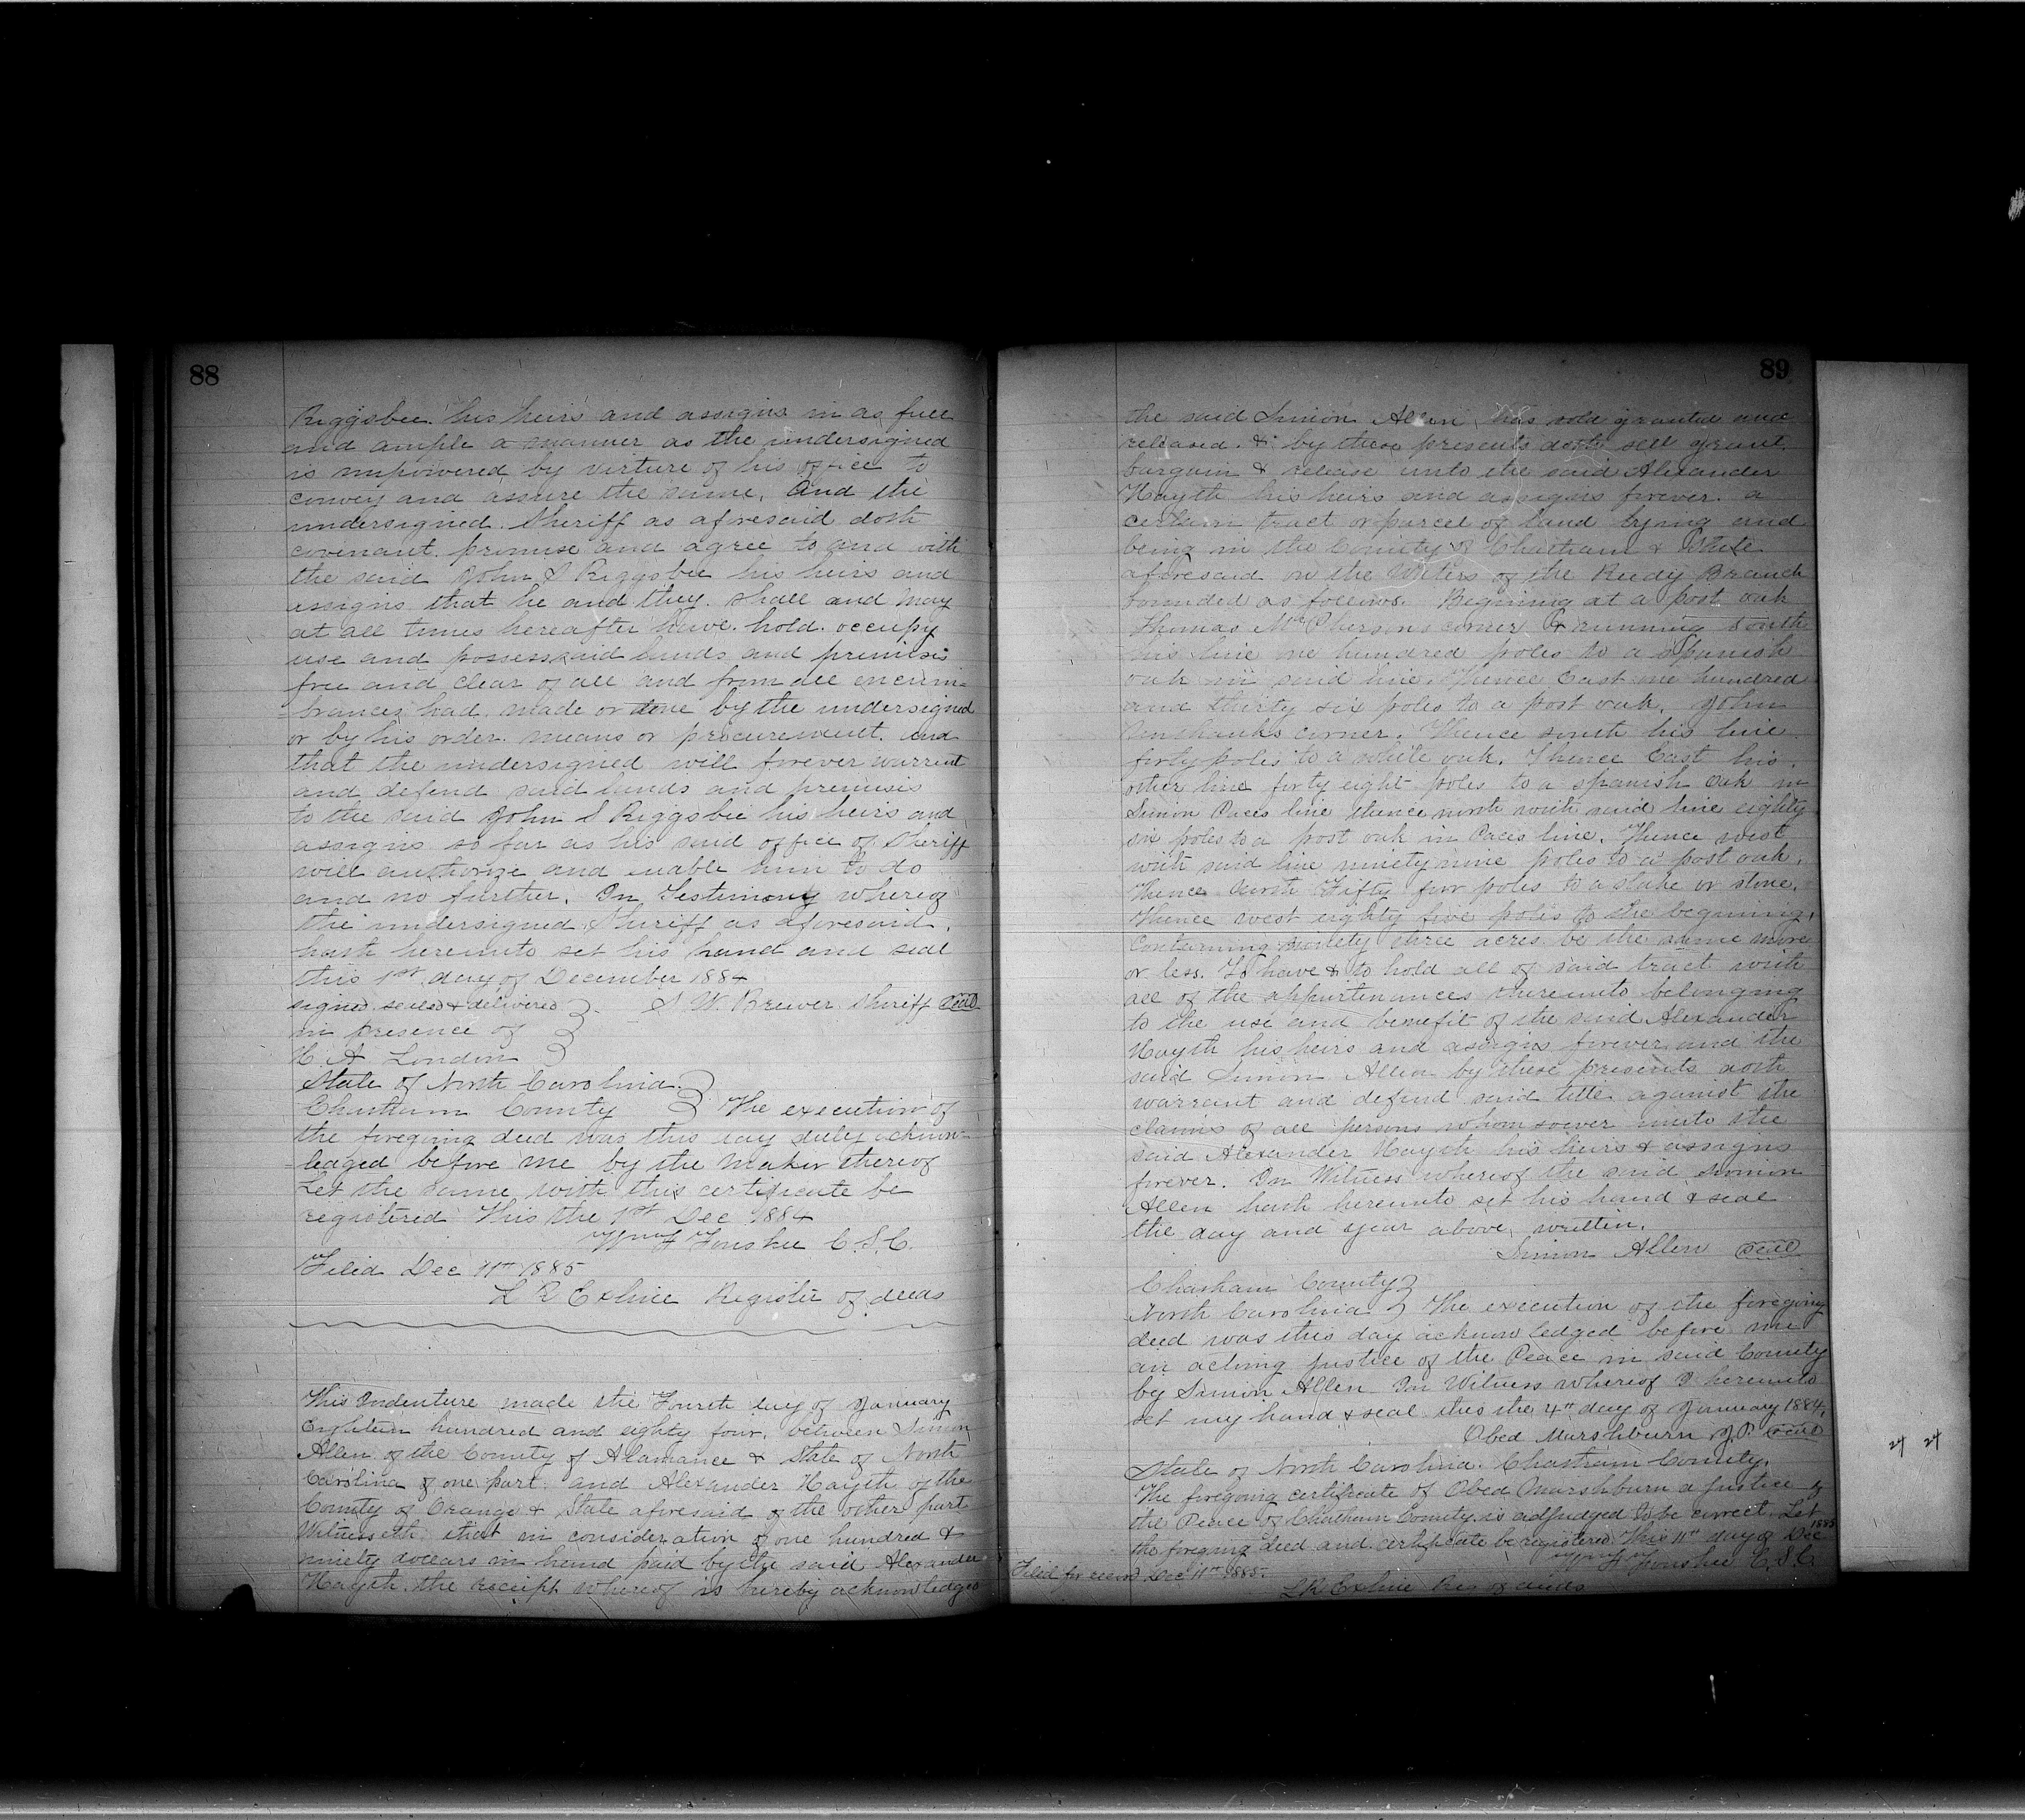 88
Riggsbee his heirs and assigns in as full
and ample a manner as the undersigned
is impowered by virture of his office to
convey and assure the same. And the
undersigned Sheriff as aforesaid doth
covenant promise and agree to and with
the said John S Riggsbee his heirs and
assigns that he and they shall and may
at all times hereafter have. hold. occupy
use and possess said lands and premises
free and clear of all and from all encum=
brances had made or done by the undersigned
or by his order. means or procurement. and
that the undersigned will forever warrent
and defend said lands and premises
to the said John S Riggsbee his heirs and
assigns so far as his said office of Sheriff
will authorize and enable him to do
and no further. In Testimony whereof
the undersigned Sheriff as aforesaid.
hath hereunto set his hand and seal
this 1st day of December 1884
signed sealed & delivered
S W. Brewer Sheriff seal
in presence of
H. A London
State of North Carolina
Chatham County The execution of
the foregoing deed was this day duly acknow=
=ledged before me by the maker thereof
Let the same with this certificate be
registered This the 1st Dec 1884
C. S. C.
Filed Dec 11th 1885
L R Exline Register of deeds
This Indenture made the Fourth day of January
Eighteen hundred and eighty four. between Simon
Allen of the County of Alamance & State of North
Carolina of one part. and Alexander Hayth of the
County of Orange & State aforesaid of the other part
Witnesseth that in consideration of one hundred &
ninety dollars in hand paid by the said Alexander
Hayth. the receipt whereof is hereby acknowledged
89
the said Simon Allen has sold granted and
released. & by these presents doth sell grant
bargain & release unto the said Alexander
Hayth his heirs and assigns forever. a
certain tract or parcel of land lying and
being in the County of Chatham & State
aforesaid on the Waters of the Reedy Branch
bounded as follows. Begining at a post oak
Thomas McPhersons corner & running South
his line one hundred poles to a Spanish
oak in said line. Thence East one hundred
and thirty six poles to a post oak. John
corner. Thence south his line
forty poles to a white oak. Thence East his
other line forty eight poles to a spanish oak in
Simon Paces line thence north with said line eighty
six poles to a post oak in Paces line. Thence west
with said line ninety nine poles to a post oak.
Thence north Fifty four poles to a stake or stone.
Thence west eighty five poles to the begining.
Containing ninety three acres be the same more
or less. To have & to hold all of said tract with
all of the appurtenances thereunto belonging
to the use and benefit of the said Alexander
Hayth his heirs and assigns forever and the
said Simon Allen by these presents doth
warrant and defend said title against the
claims of all persons whomsoever unto the
said Alexander Hayth his heirs & assigns
forever. In Witness whereof the said Simon
Allen hath hereunto set his hand & seal
the day and year above written.
Simon Allen seal
Chatham County
North Carolina The execution of the foregoing
deed was this day acknowledged before me
an acting justice of the Peace in said County
by Simon Allen In Witness whereof I hereunto
set my hand & seal this the 4th day of January 1884.
Obed Marshburn J. P. seal
State of North Carolina. Chatham County.
The foregoing certificate of Obed Marshburn a justice of
the Peace of Chatham County is adjudged to be correct. Let
the foregoing deed and certificate be registered This 11th day of Dec 1885
C. S. C.
Filed for record Dec 11th 1885.
L R Exline Reg of deeds
24 24